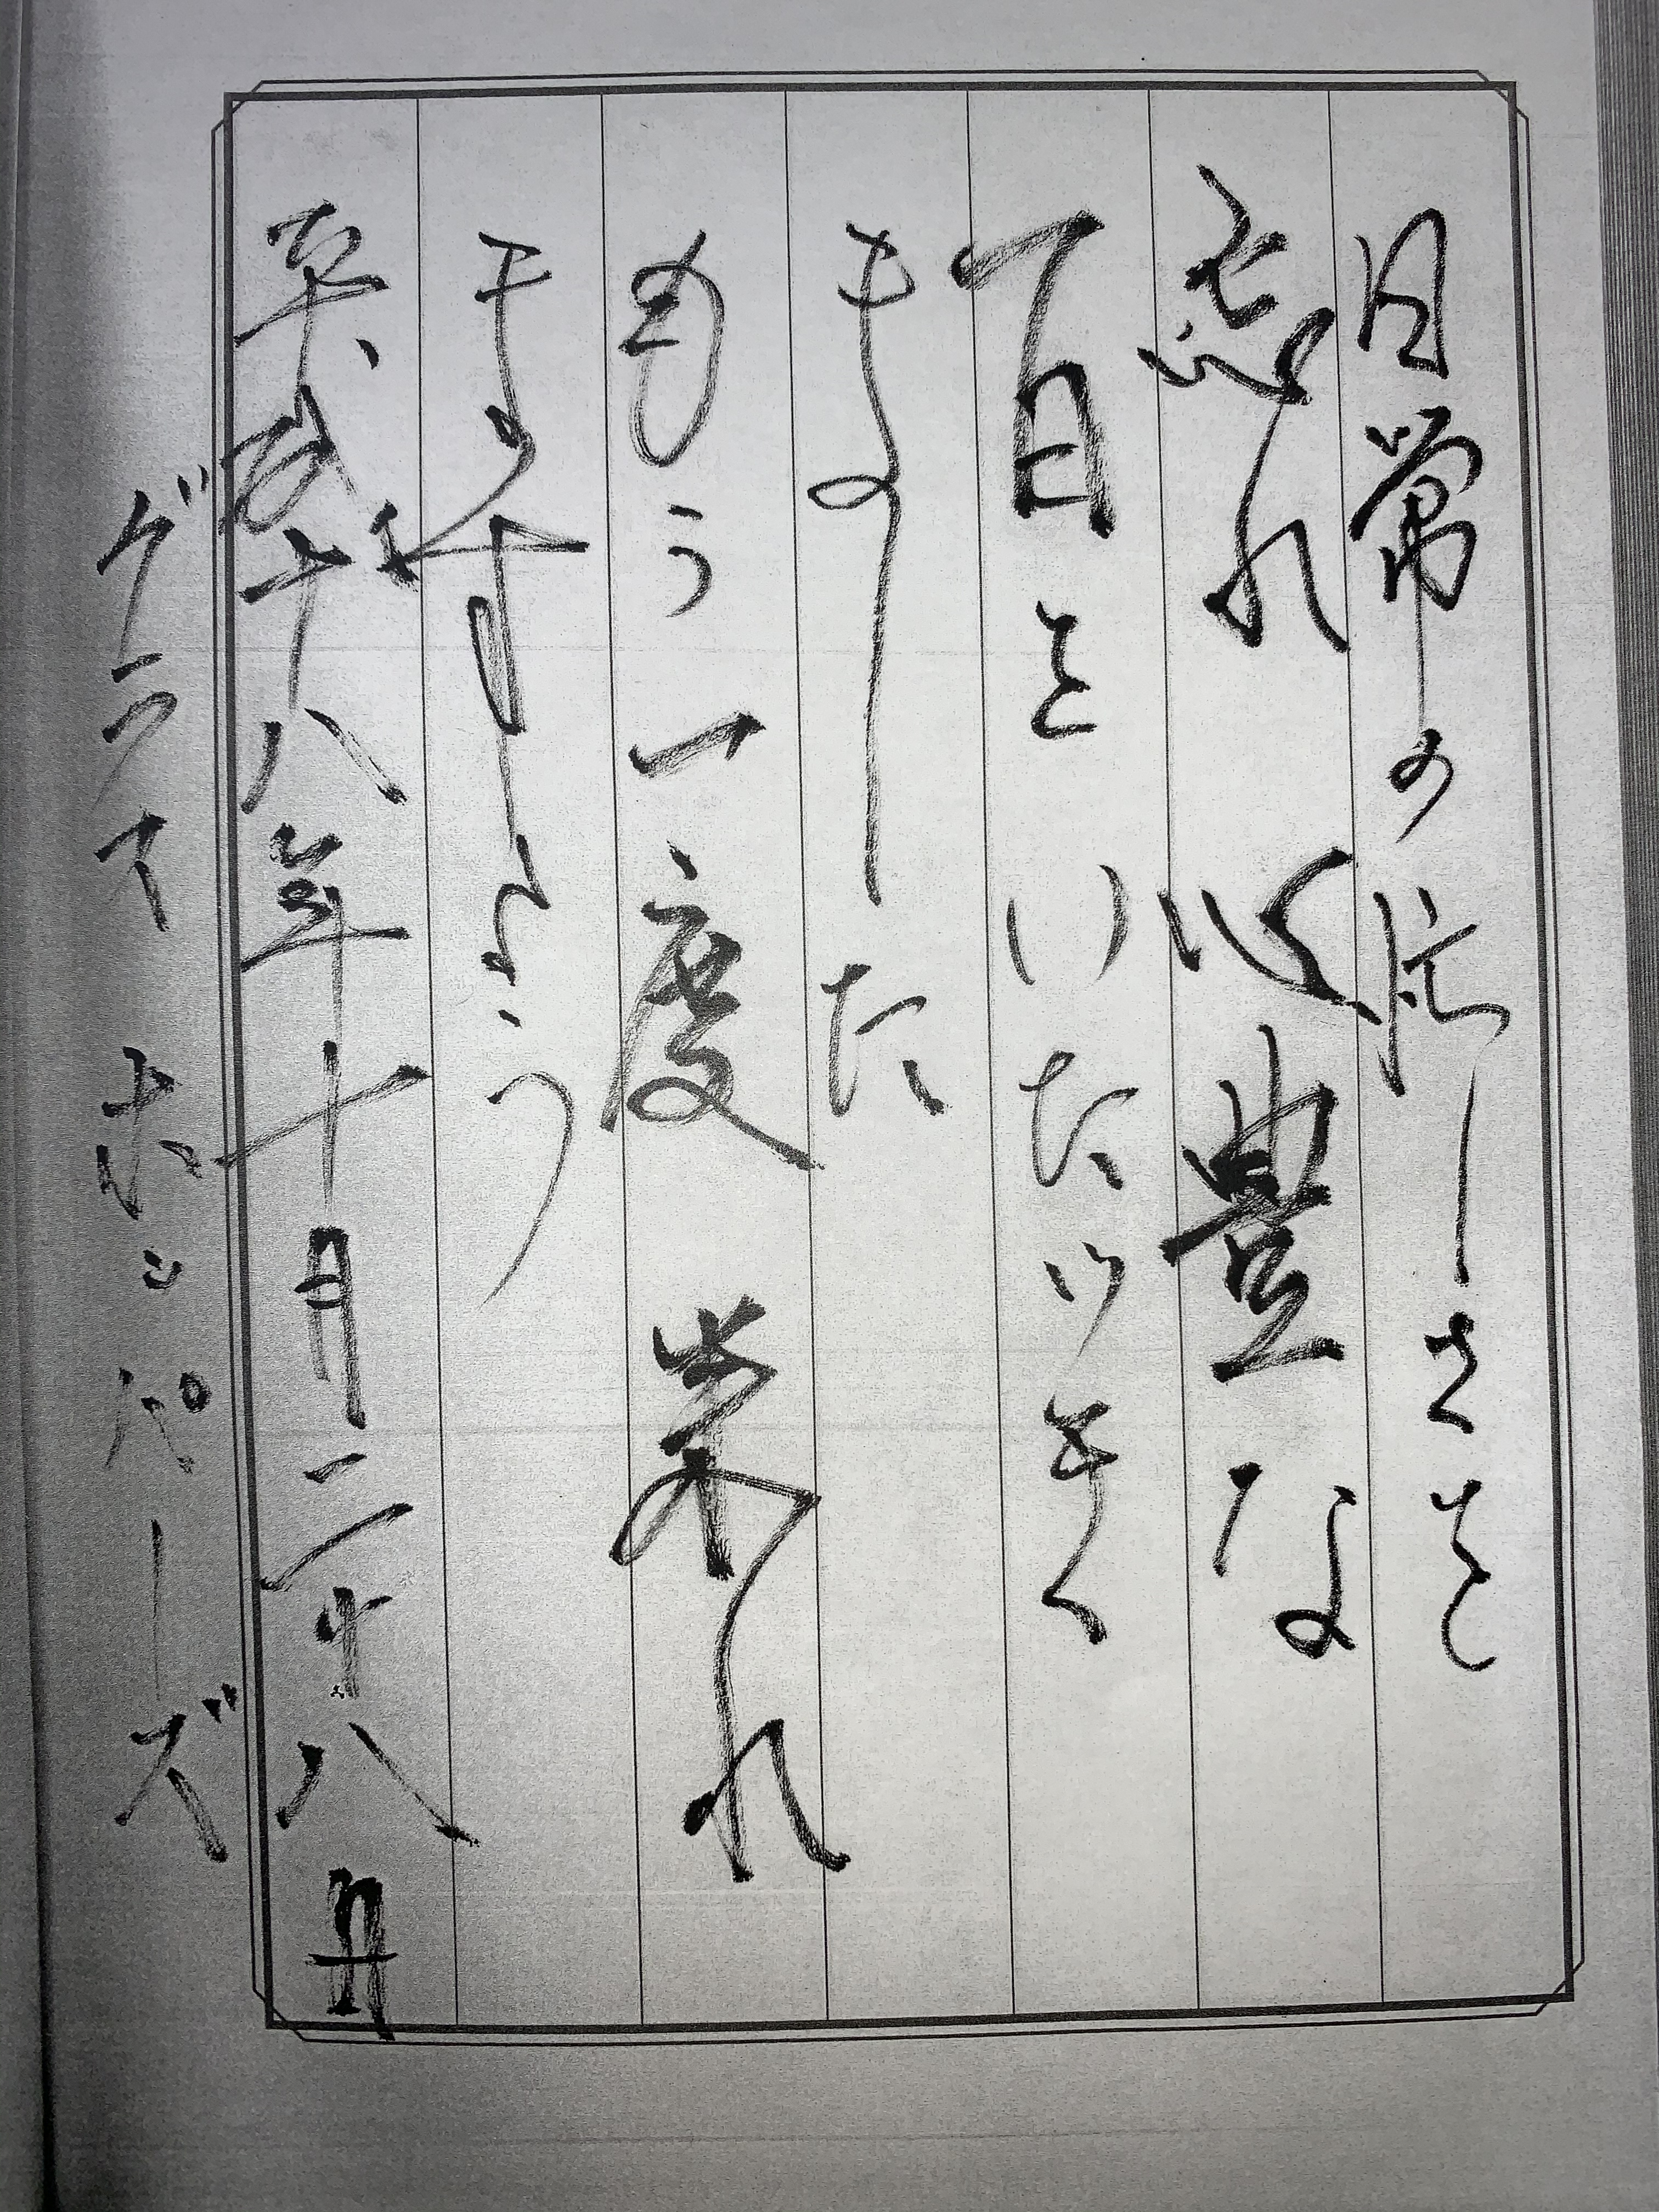 日常の忙しさを
忘れ 心豊な
一日をいたゞき
ました
もう一度 来れ
ますよう
平成十八年十月二十八日
グラスホッパーズ